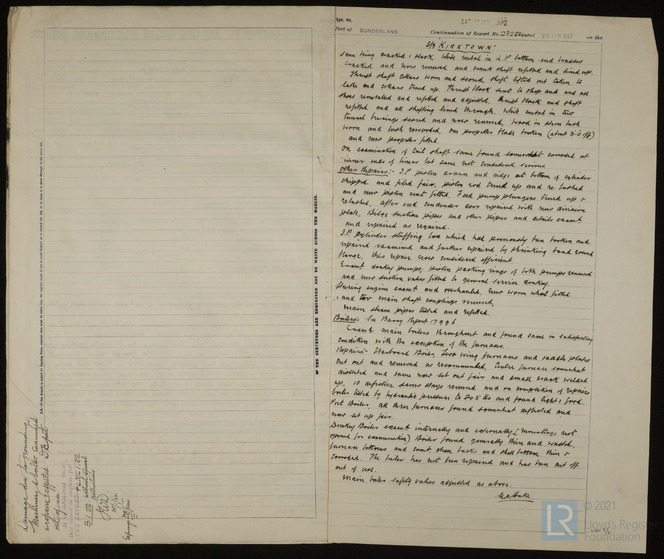 Rpt. No.
Port of SUNDERLAND. Continuation of Report No. dated on the
S/S "KIRKTOWN"
same being cracked & slack. White metal in L.P. bottom end brasses
cracked and now renewed and crank shaft refitted and lined up.
Thrust shaft collars worn and scored, shaft lifted out taken to
lathe and collars trued up. Thrust block sent to shop and and all
shoes remetalled and refitted and adjusted, thrust block and shaft
refitted and all shafting lined through. White metal in two
tunnel bearings scored and now renewed, wood in stern bush
worn and bush rewooded, one propeller blade broken (about 2'-0 off)
and new propeller fitted.
On examination of tail shaft same found somewhat corroded at
inner ends of liners but same not considered serious.
Other Repairs:- I.P. piston drawn and ridge at bottom of cylinder
chipped and filed fair, piston rod trued up and re bushed
and new piston nut fitted. Feed pump plungers trued up &
rebushed, after end condenser door repaired with new division
plate, Bilge suction pipes and other pipes and details exam'd
and repaired as required.
I.P. cylinder stuffing box which had previously been broken and
repaired examined and further repaired by shrinking band round
flange, this repair now considered efficient.
Exam'd donkey pumps, piston packing rings of both pumps renewed
and new suction valves fitted to general service donkey.
Steering engine exam'd and overhauled, new worm wheel fitted
and two main shaft couplings renewed,
main steam pipes tested and refitted.
Boilers:- See Barry Report 17996
Exam'd main boilers throughout and found same in satisfactory
condition with the exception of the furnaces.
Repairs:- Starboard Boiler, two wing furnaces and saddle plates
cut out and renewed as recommended, Centre furnace somewhat
distorted and same now set out fair and small crack welded
up. 10 defective screw stays renewed and on completion of repairs
boiler tested by hydraulic pressure to 205 lbs and found tight & good.
Port Boiler, all three furnaces found somewhat deflected and
now set up fair.
Donkey Boiler exam'd internally and externally (mountings not
opened for examination) Boiler found generally thin and wasted,
furnace bottoms and comb. cham. back and shell bottom thin &
corroded. The boiler has not been repaired and has been cut off
out of use.
Main boiler safety valves adjusted as above.
IF THE SURVEYORS ARE REQUESTED NOT TO WRITE ACROSS THE MARGIN.
Damage due to grounding
Machinery & boilers examined
repairs effected
out of use
© 2021
Lloyd's Register
Foundation